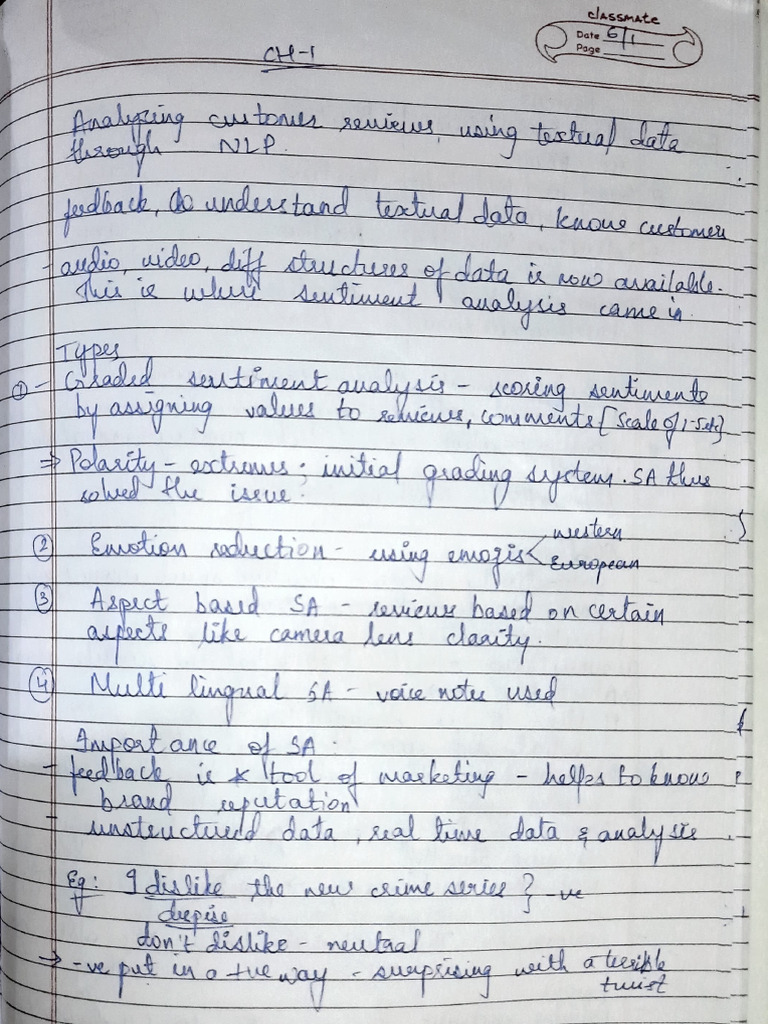 classmate
Date 6/1
Page
CH-1
Analyzing customer reviews, using textual data
through NLP.
feedback, to understand textual data, know customers
- audio, video, diff structures of data is now available.
This is where sentiment analysis came in.
Types
① - Graded sentiment analysis - scoring sentiments
by assigning values to reviews, comments [Scale of 1-5]
⇒ Polarity - extremes; initial grading system. SA thus
solved the issue.
② Emotion - using emojis < western
European
③ Aspect based SA - reviews based on certain
aspects like camera lens clarity.
④ Multi lingual SA - voice notes used
Importance of SA.
- feedback is * tool of marketing - helps to know
brand reputation
- unstructured data, real time data & analysis
Eg: I dislike the new crime series } -ve
despise
don't dislike - neutral
→ -ve put in a +ve way - surprising with a terrible
twist